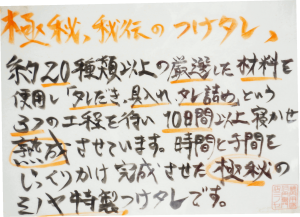 極秘、秘伝のつけタレ、
約20種類以上の厳選した材料を
使用し「タレだき、具入れ、タレ詰め」という
3つの工程を行い10日間以上寝かせ
熟成させています。時間と手間を
じっくりかけ完成させた極秘の
ミハヤ特製つけタレです。